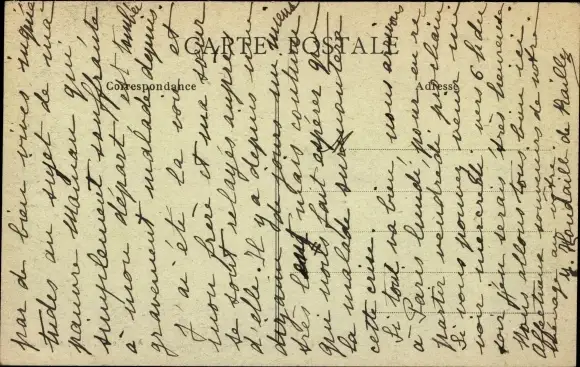 CARTE POSTALE
Correspondance
Adresse
par de bien vives inquié
tudes au sujet de ma
pauvre Maman qui,
simplement souffrante
à mon départ, est tombée
gravement malade depuis.
J'ai été la voir et
mon frère et ma sœur
se sont relayés auprès
d'elle. Il y a depuis un
jours un mieux
très lent mais continu
qui nous fait espérer que
la malade surmontera
cette crise.
Si tout va bien, nous
à Paris lundi, pour en re
partir vendredi prochain
Si vous pouvez venir me
voir mercredi vers 6 h du
soir j'en serais très heureuse.
Nous allons tous bien ici.
Affectueux souvenirs de notre
ménage au vôtre.